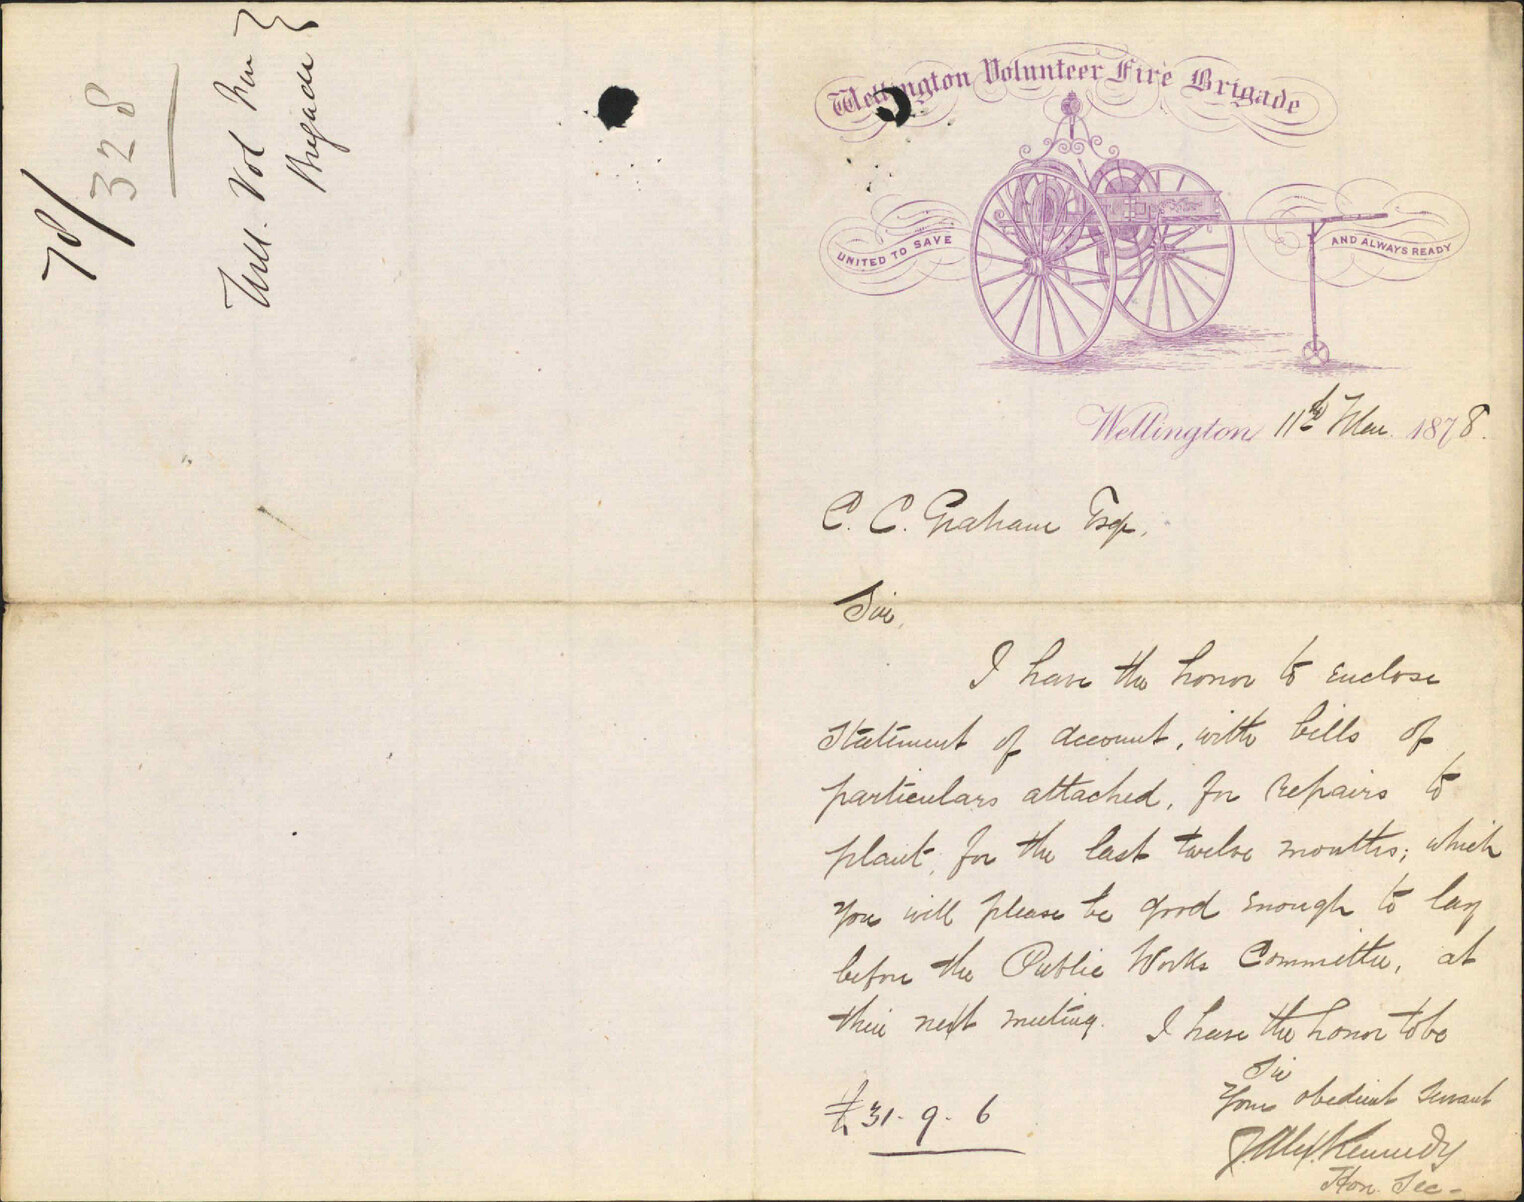 78/328
Well. Vol Fire
Brigade
Wellington Volunteer Fire Brigade
UNITED TO SAVE
AND ALWAYS READY
Wellington 11th Mar. 1878.
C. C. Graham Esq.
Sir,
I have the honor to enclose
Statement of account, with bills of
particulars attached, for repairs to
plant, for the last twelve months; which
you will please be good enough to lay
before the Public Works Committee, at
their next meeting. I have the honor to be
Sir
Your obedient servant
£31-9-6
J. Alex Kennedy
Hon. Sec-